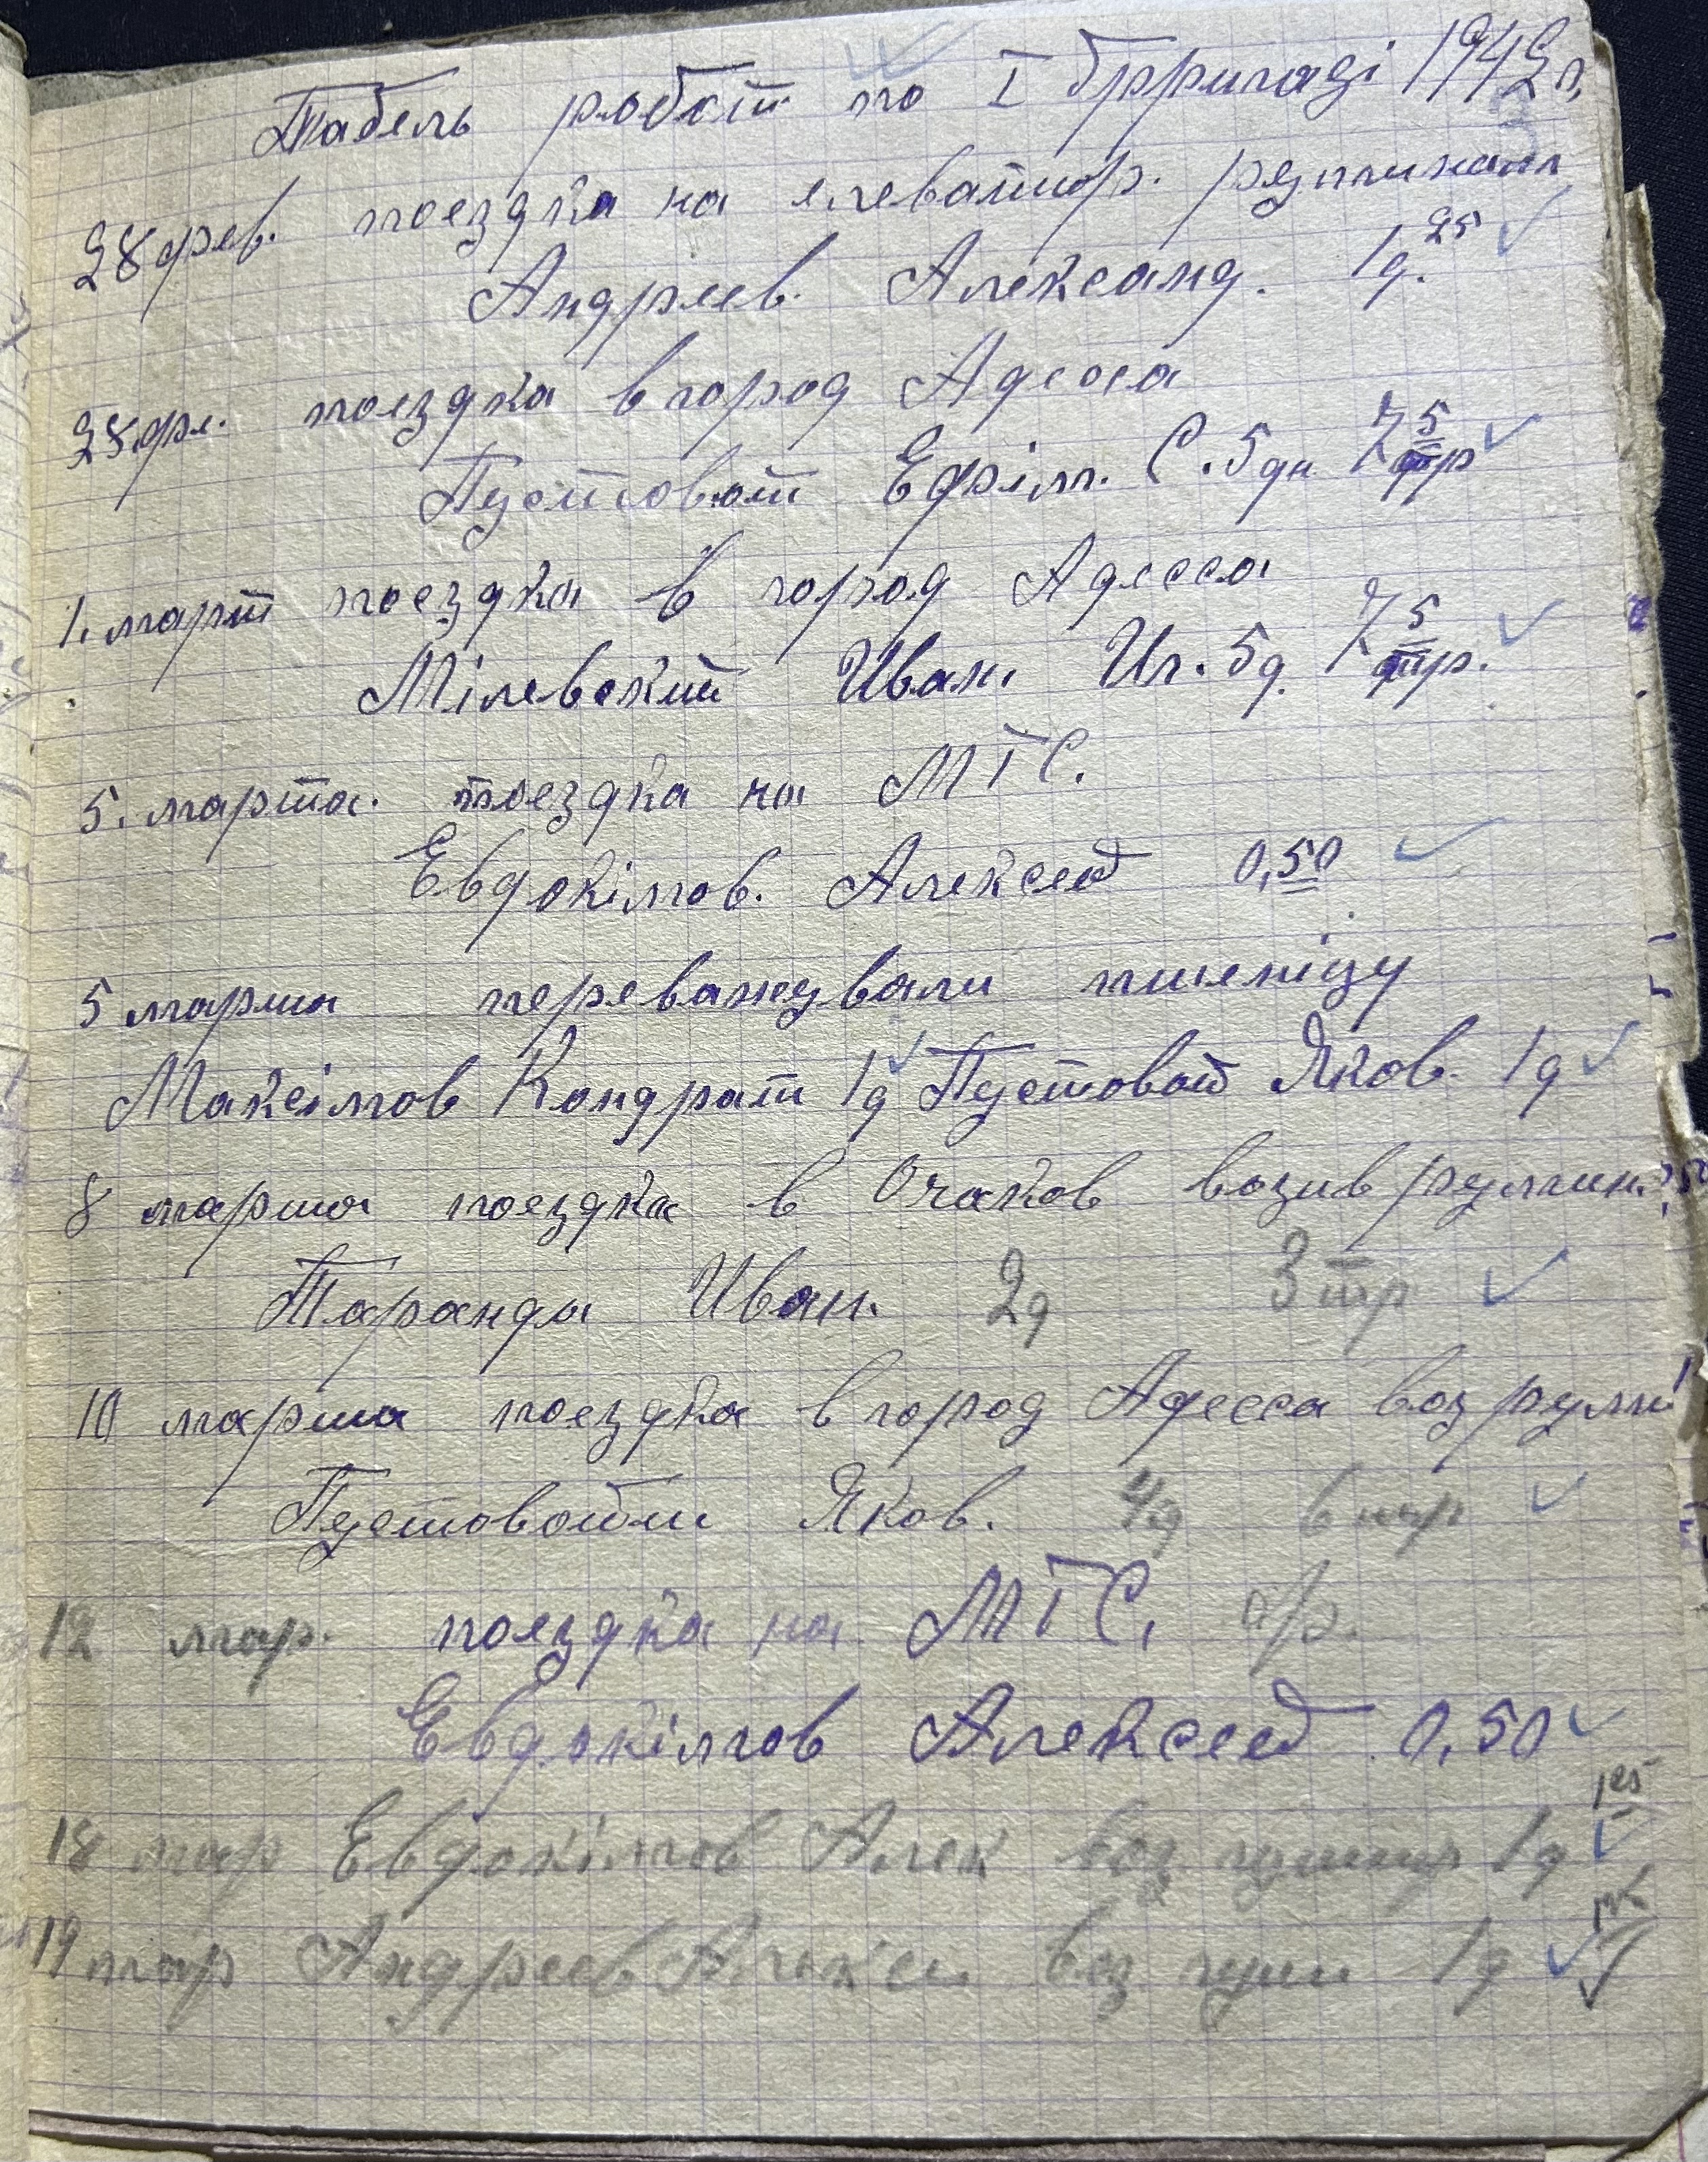 Табель робот по I брригаді 1942 г,
3
28 фев. поездка на елеватор.
Андреев. Александ. 1д. 25
28 фе. поездка в город Адесса
Пустовот Ефім. С. 5 дн 7 5 тр
1. март поездка в город Адесса
Мілевский Иван. Иг. 5д 7 5 тр.
5. марта. поездка на МТС.
Евдокімов. Алексей 0,50
5 марта переважували пшеніцу
Максімов Кондрат 1д Пустовой Яков. 1д
8 марта поездка в Очаков возив румин.
Таранда Иван. 2д 3 тр
10 марта поездка в город Адесса воз румы
Пустовойт Яков. 4д 6 тр
12 мар. поездка на МТС,
Евдокімов Алексей 0,50
125
18 мар Евдокімов Алек воз 1д
19 мар Андреев Алексе воз 1д